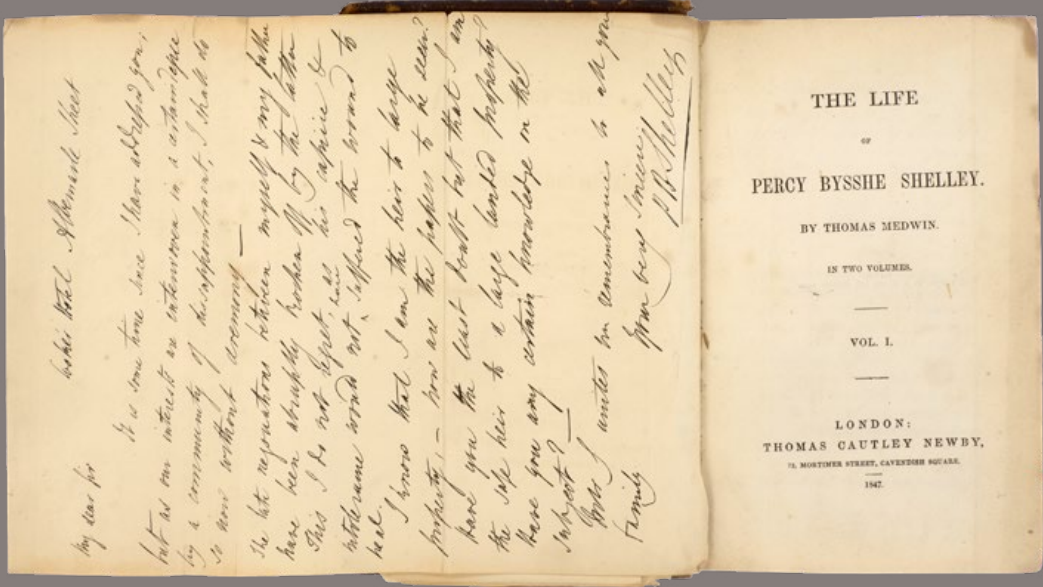 My dear Sir
Hotel Albemarle Street
It is some time since I have addressed you;
but as our interests are interwoven in a certain degree
by a community of disappointment, I shall do
so now without ceremony —
The late negociations between myself & my father
have been abruptly broken off by the latter
This I do not regret, as his caprice &
intolerance would not have suffered the wound to
heal.
I know that I am the heir to large
property, — now are the papers to be seen?
Have you the least doubt but that I am
the safe heir to a large landed property?
Have you any certain knowledge on the
subject? —
Mrs S unites in remembrance to all your
family
Yours very sincerely
P B Shelley
THE LIFE
OF
PERCY BYSSHE SHELLEY.
BY THOMAS MEDWIN.
IN TWO VOLUMES.
VOL. I.
LONDON:
THOMAS CAUTLEY NEWBY,
72, MORTIMER STREET, CAVENDISH SQUARE.
1847.